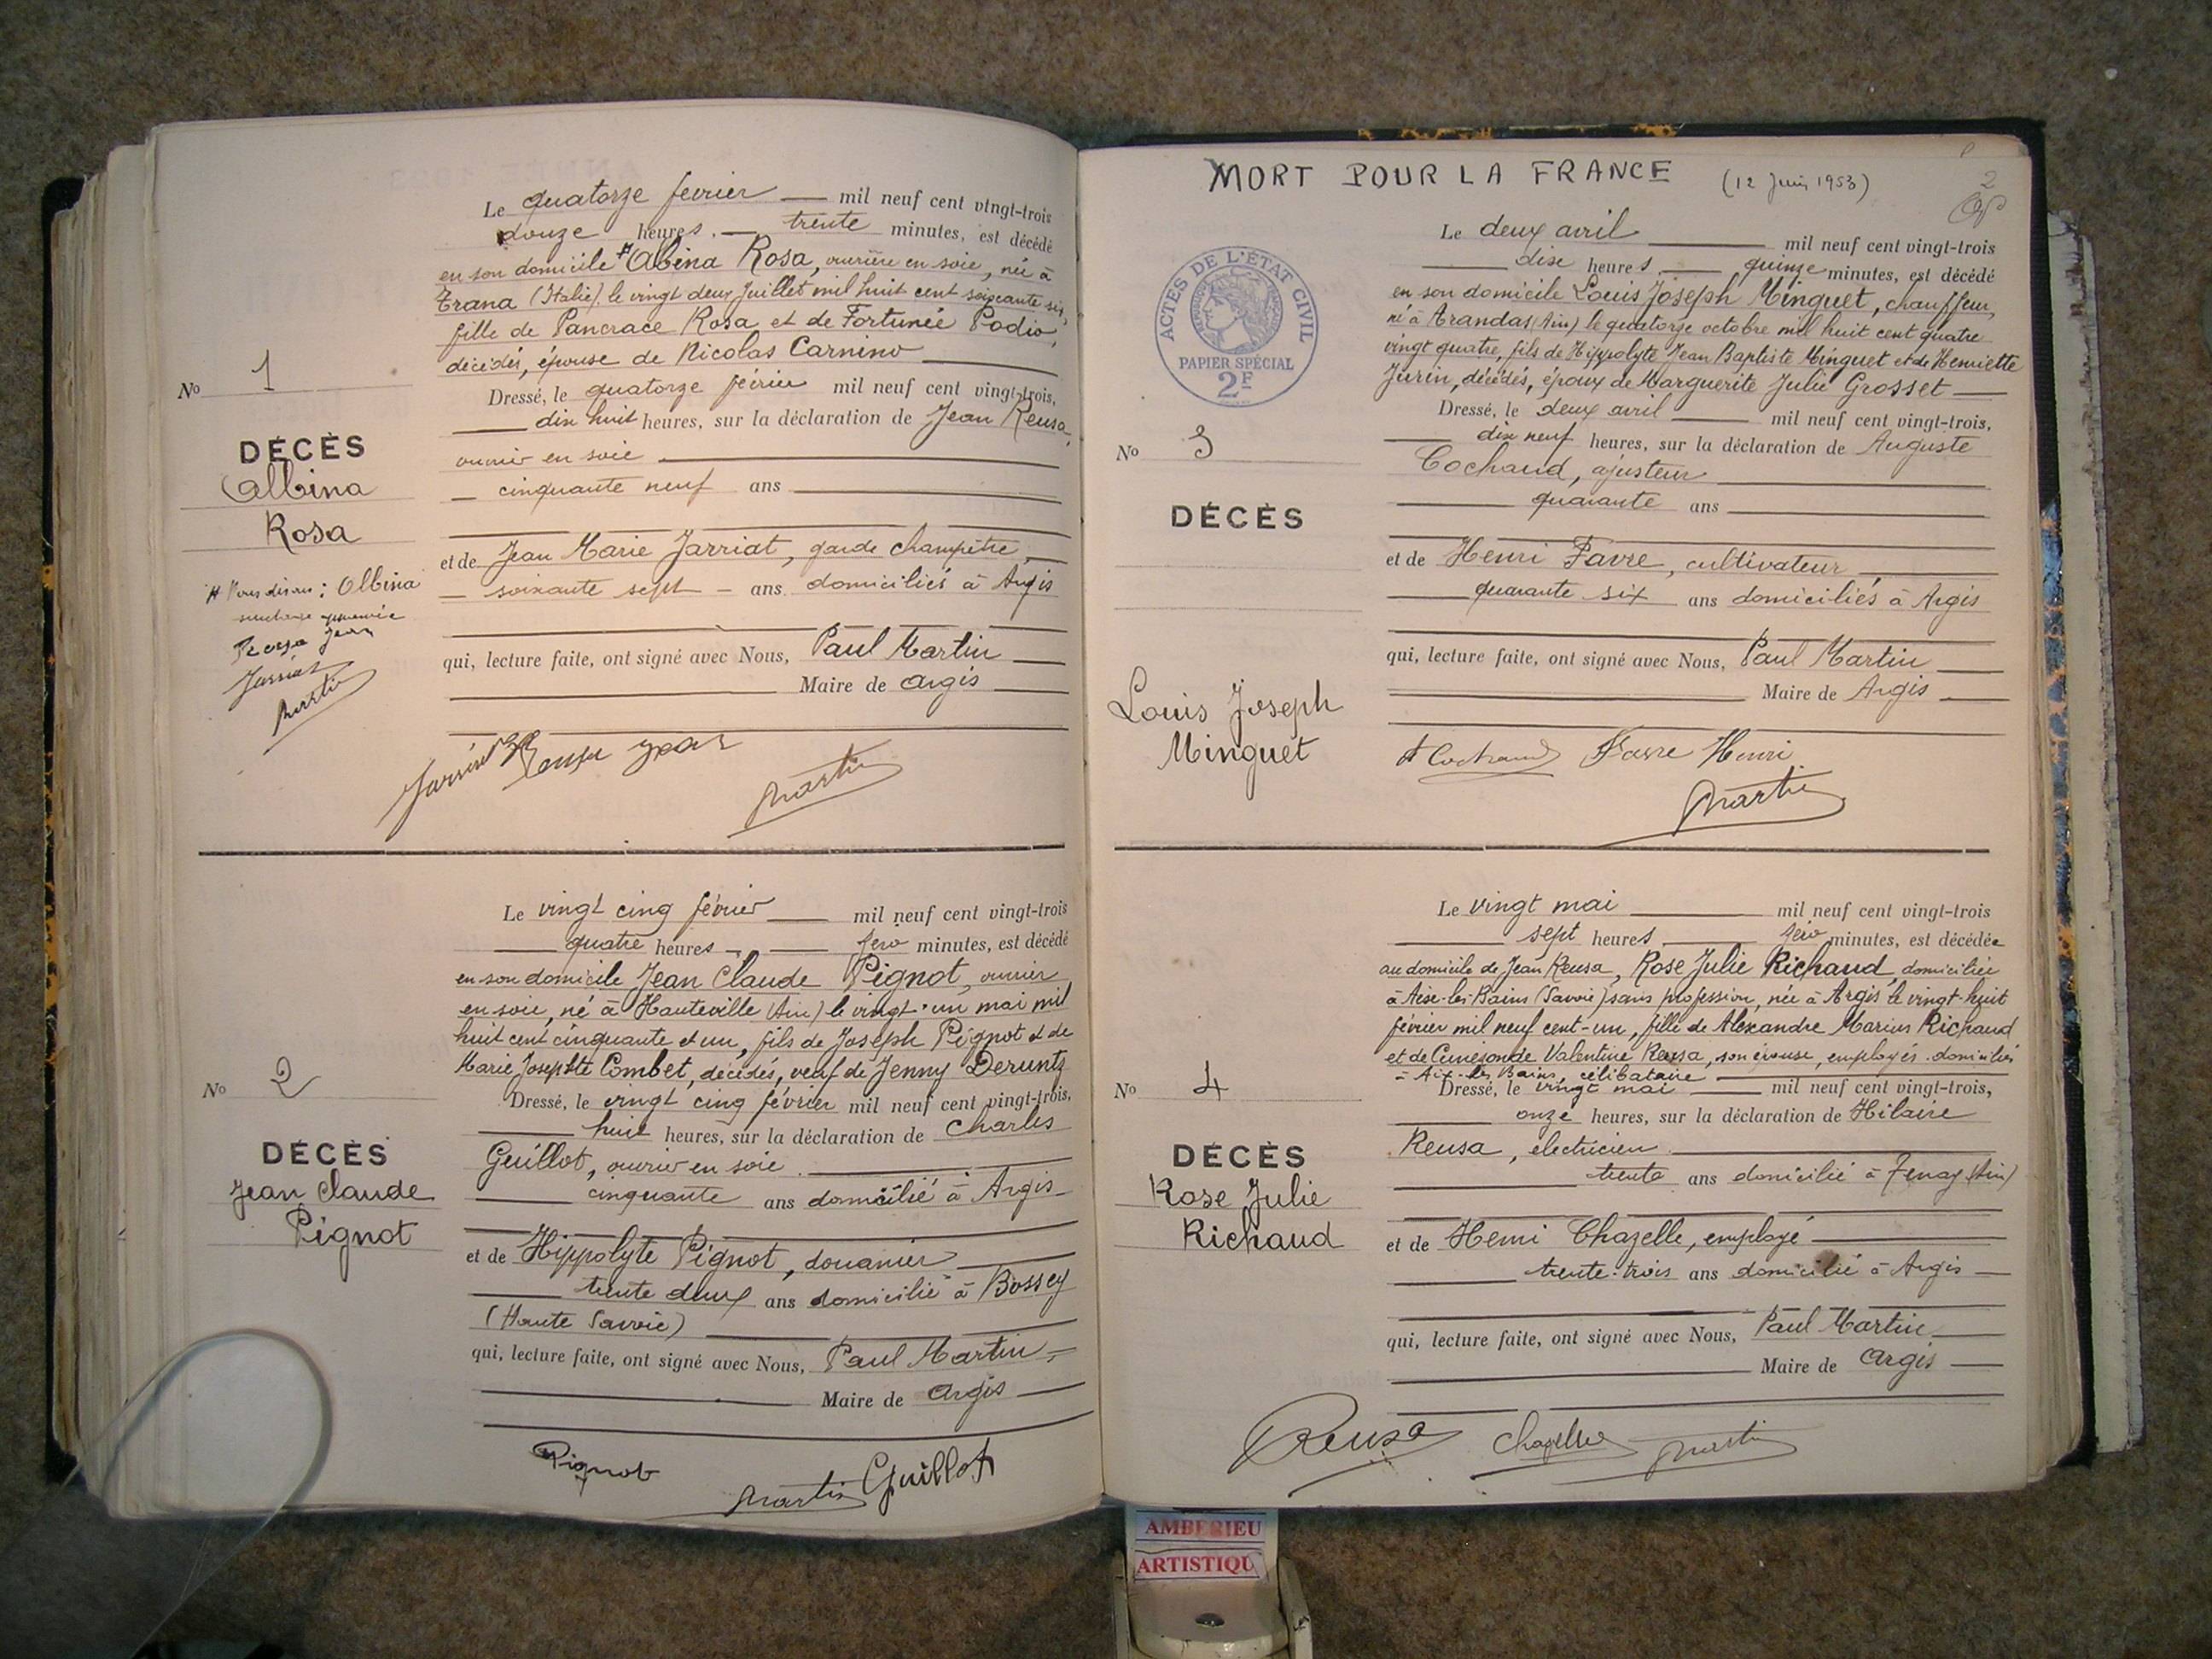 Le quatorze février — mil neuf cent vingt-trois
douze heures — trente minutes, est décédé
en son domicile # Abina Rosa, ouvrière en soie, née à
Trana (Italie), le vingt deux Juillet mil huit cent soixante six,
fille de Pancrace Rosa et de Fortunée Podio,
décédés, épouse de Nicolas Carnino
No 1
Dressé, le quatorze février mil neuf cent vingt-trois,
dix huit heures, sur la déclaration de Jean Reusa,
DÉCÈS
ouvrier en soie
Albina
cinquante neuf ans
Rosa
et de Jean Marie Jarriat, garde champêtre,
# Nous disons : Olbina
soixante sept — ans domiciliés à Argis
surcharge approuvée
Reusa Jean
Jarriat
Martin
qui, lecture faite, ont signé avec Nous, Paul Martin
Maire de Argis
Jarriat Reusa Jean
Martin
Le vingt cinq février mil neuf cent vingt-trois
quatre heures — zéro minutes, est décédé
en son domicile Jean Claude Pignot, ouvrier
en soie, né à Hauteville (Ain) le vingt-un mai mil
huit cent cinquante et un, fils de Joseph Pignot et de
Marie Josephte Combet, décédés, veuf de Jenny Deruntz
No 2
Dressé, le vingt cinq février mil neuf cent vingt-trois,
huit heures, sur la déclaration de Charles
DÉCÈS
Guillot, ouvrier en soie
Jean Claude
cinquante ans domicilié à Argis
Pignot
et de Hippolyte Pignot, douanier
trente deux ans domicilié à Bossey
(Haute Savoie)
qui, lecture faite, ont signé avec Nous, Paul Martin
Maire de Argis
Pignot
Martin Guillot
MORT POUR LA FRANCE (12 Juin 1953)
2
Le deux avril mil neuf cent vingt-trois
dix heures quinze minutes, est décédé
en son domicile Louis Joseph Minguet, chauffeur,
né à Arandas (Ain) le quatorze octobre mil huit cent quatre
vingt quatre, fils de Hippolyte Jean Baptiste Minguet et de Henriette
Jurin, décédés, époux de Marguerite Julie Grosset
ACTES DE L'ÉTAT CIVIL
PAPIER SPÉCIAL
2F
Dressé, le deux avril mil neuf cent vingt-trois,
No 3
dix neuf heures, sur la déclaration de Auguste
Cochaud, ajusteur
DÉCÈS
quarante ans
et de Henri Favre, cultivateur
quarante six ans domiciliés à Argis
qui, lecture faite, ont signé avec Nous, Paul Martin
Maire de Argis
Louis Joseph
Minguet
A Cochaud Favre Henri
Martin
Le vingt mai mil neuf cent vingt-trois
sept heures zéro minutes, est décédée
au domicile de Jean Reusa, Rose Julie Richaud, domiciliée
à Aix-les-Bains (Savoie) sans profession, née à Argis le vingt-huit
février mil neuf cent-un, fille de Alexandre Marius Richaud
et de Cunégonde Valentine Reusa, son épouse, employés domiciliés
à Aix-les Bains, célibataire
No 4
Dressé, le vingt mai mil neuf cent vingt-trois,
onze heures, sur la déclaration de Hilaire
DÉCÈS
Reusa, électricien
Rose Julie
trente ans domicilié à Tenay (Ain)
Richaud
et de Henri Chazelle, employé
trente-trois ans domicilié à Argis
qui, lecture faite, ont signé avec Nous, Paul Martin
Maire de Argis
Reusa Chazelle Martin
AMBERIEU
ARTISTIQU